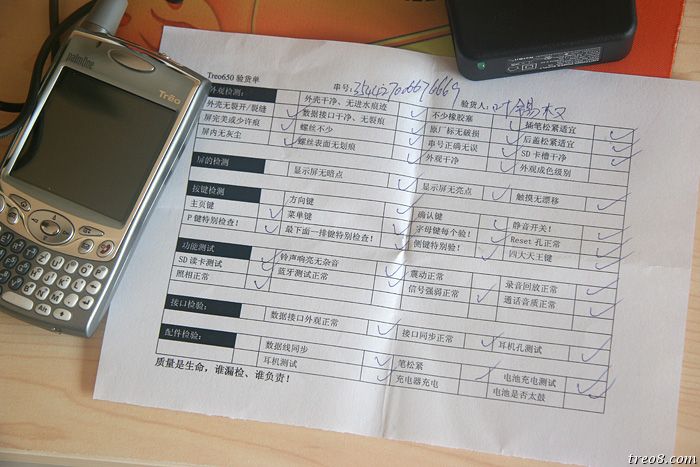 palmOne
Treo
Treo650 验货单 串号: 验货人:
外观检测: 外壳干净、无进水痕迹 不少橡胶塞 插笔松紧适宜
外壳无裂开/裂缝 数据接口干净、无裂痕 原厂标无破损 后盖松紧适宜
屏完美或少许痕 螺丝不少 串号正确无误 SD卡槽干净
屏内无灰尘 螺丝表面无划痕 外观干净 外观成色级别
屏的检测 显示屏无暗点 显示屏无亮点 触摸无漂移
按键检测 方向键 确认键 静音开关!
主页键 菜单键 字母键每个验! Reset 孔正常
P键特别检查! 最下面一排键特别检查! 侧键特别验! 四大天王键
功能测试 铃声响亮无杂音 震动正常 录音回放正常
SD读卡测试 蓝牙测试正常 信号强弱正常 通话音质正常
照相正常
接口检验: 数据接口外观正常 接口同步正常 耳机孔测试
配件检验: 数据线同步 笔松紧 电池充电测试
耳机测试 充电器充电 电池是否太鼓
质量是生命，谁漏检、谁负责！
treo8.com